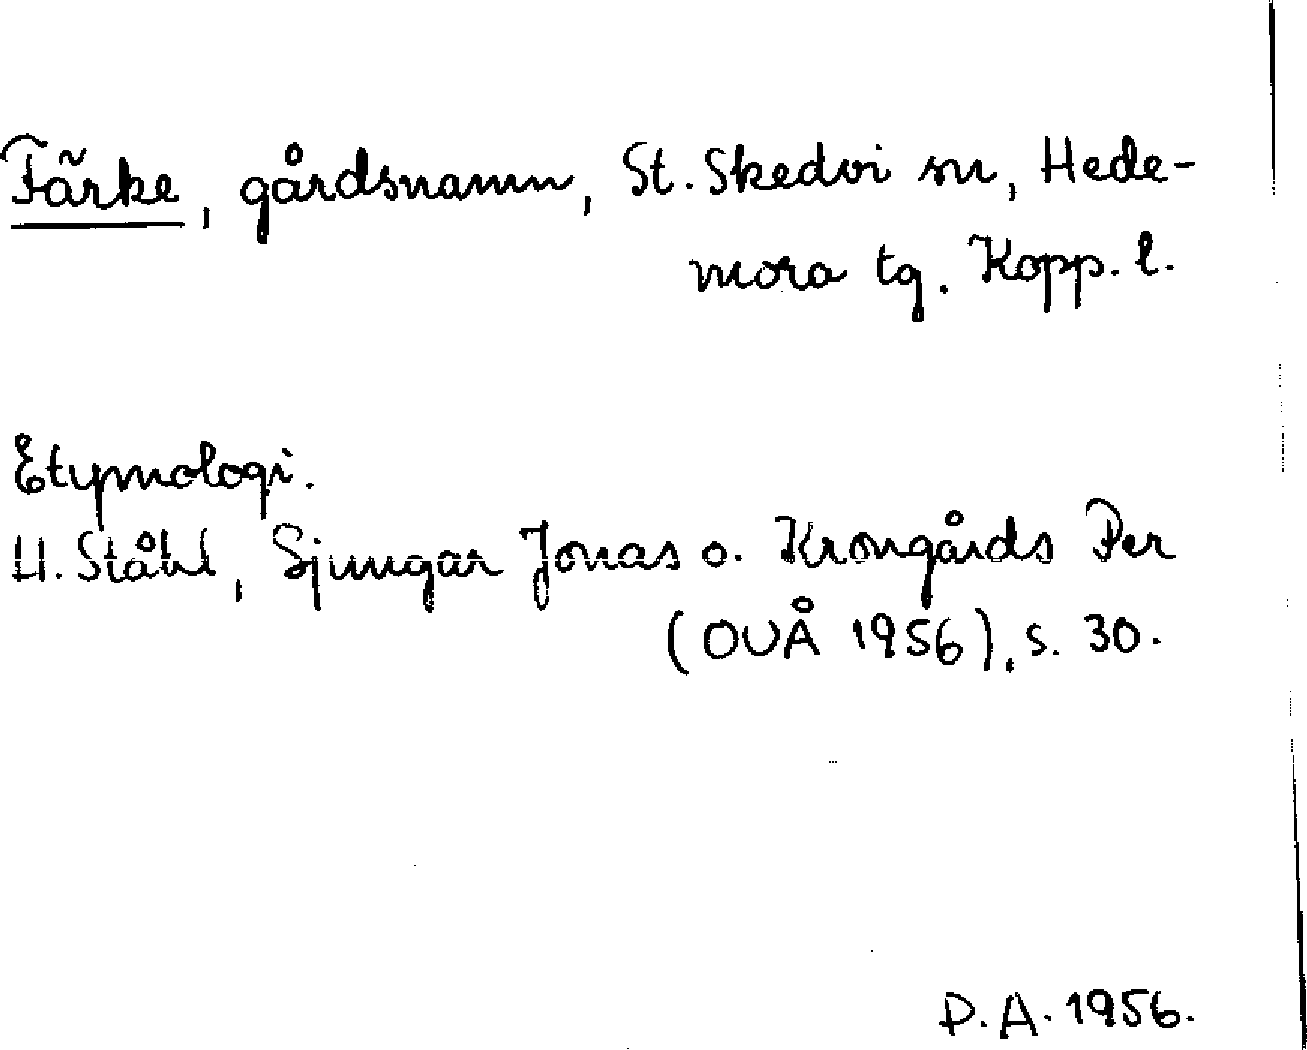 Färke, gårdsnamn, St. Skedvi sn, Hede-
mora tg. Kopp. l.
Etymologi.
H. Ståhl, Sjungar Jonas o. Krongårds Per
(OUÅ 1956), s. 30.
P.A. 1956.